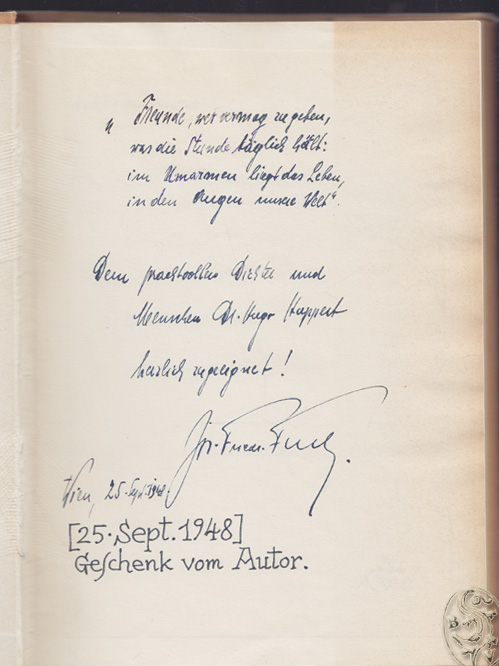 „ Freunde, wer vermag zu geben,
was die Stunde täglich hält:
im Umarmen liegt das Leben,
in den Augen unsere Welt“.
Dem prachtvollen Dichter und
Menschen Dr. Hugo Huppert
herzlich zugeeignet!
Jos. Friedr. Fuchs.
Wien, 25. Sept. 1948.
[25. Sept. 1948]
Geſchenk vom Autor.